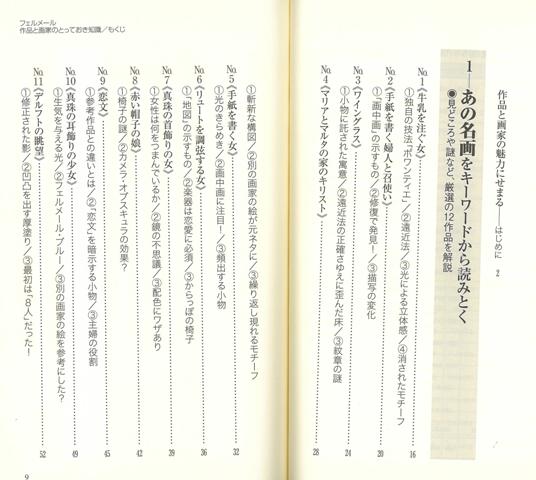 作品と画家の魅力にせまる――はじめに 2
1――あの名画をキーワードから読みとく
●見どころや謎など、厳選の12作品を解説
No.1《牛乳を注ぐ女》 16
①独自の技法「ポワンティエ」/②遠近法/③光による立体感/④消されたモチーフ
No.2《手紙を書く婦人と召使い》 20
①「画中画」の示すもの/②修復で発見!/③描写の変化
No.3《ワイングラス》 24
①小物に託された寓意/②遠近法の正確さゆえに歪んだ床/③紋章の謎
No.4《マリアとマルタの家のキリスト》 28
①斬新な構図/②別の画家の絵が元ネタに/③繰り返し現れるモチーフ
No.5《手紙を書く女》 32
①光のきらめき/②画中画に注目!/③頻出する小物
No.6《リュートを調弦する女》 36
①「地図」の示すもの/②楽器は恋愛に必須/③からっぽの椅子
No.7《真珠の首飾りの女》 39
①女性は何をつまんでいるか/②鏡の不思議/③配色にワザあり
No.8《赤い帽子の娘》 42
①椅子の謎/②カメラ・オブスキュラの効果?
No.9《恋文》 45
①参考作品との違いとは/②「恋文」を暗示する小物/③主婦の役割
No.10《真珠の耳飾りの少女》 49
①生気を与える光/②フェルメール・ブルー/③別の画家の絵を参考にした?
No.11《デルフトの眺望》 52
①修正された影/②凹凸を出す厚塗り/③最初は「8人」だった!
フェルメール
作品と画家のとっておき知識/もくじ
9